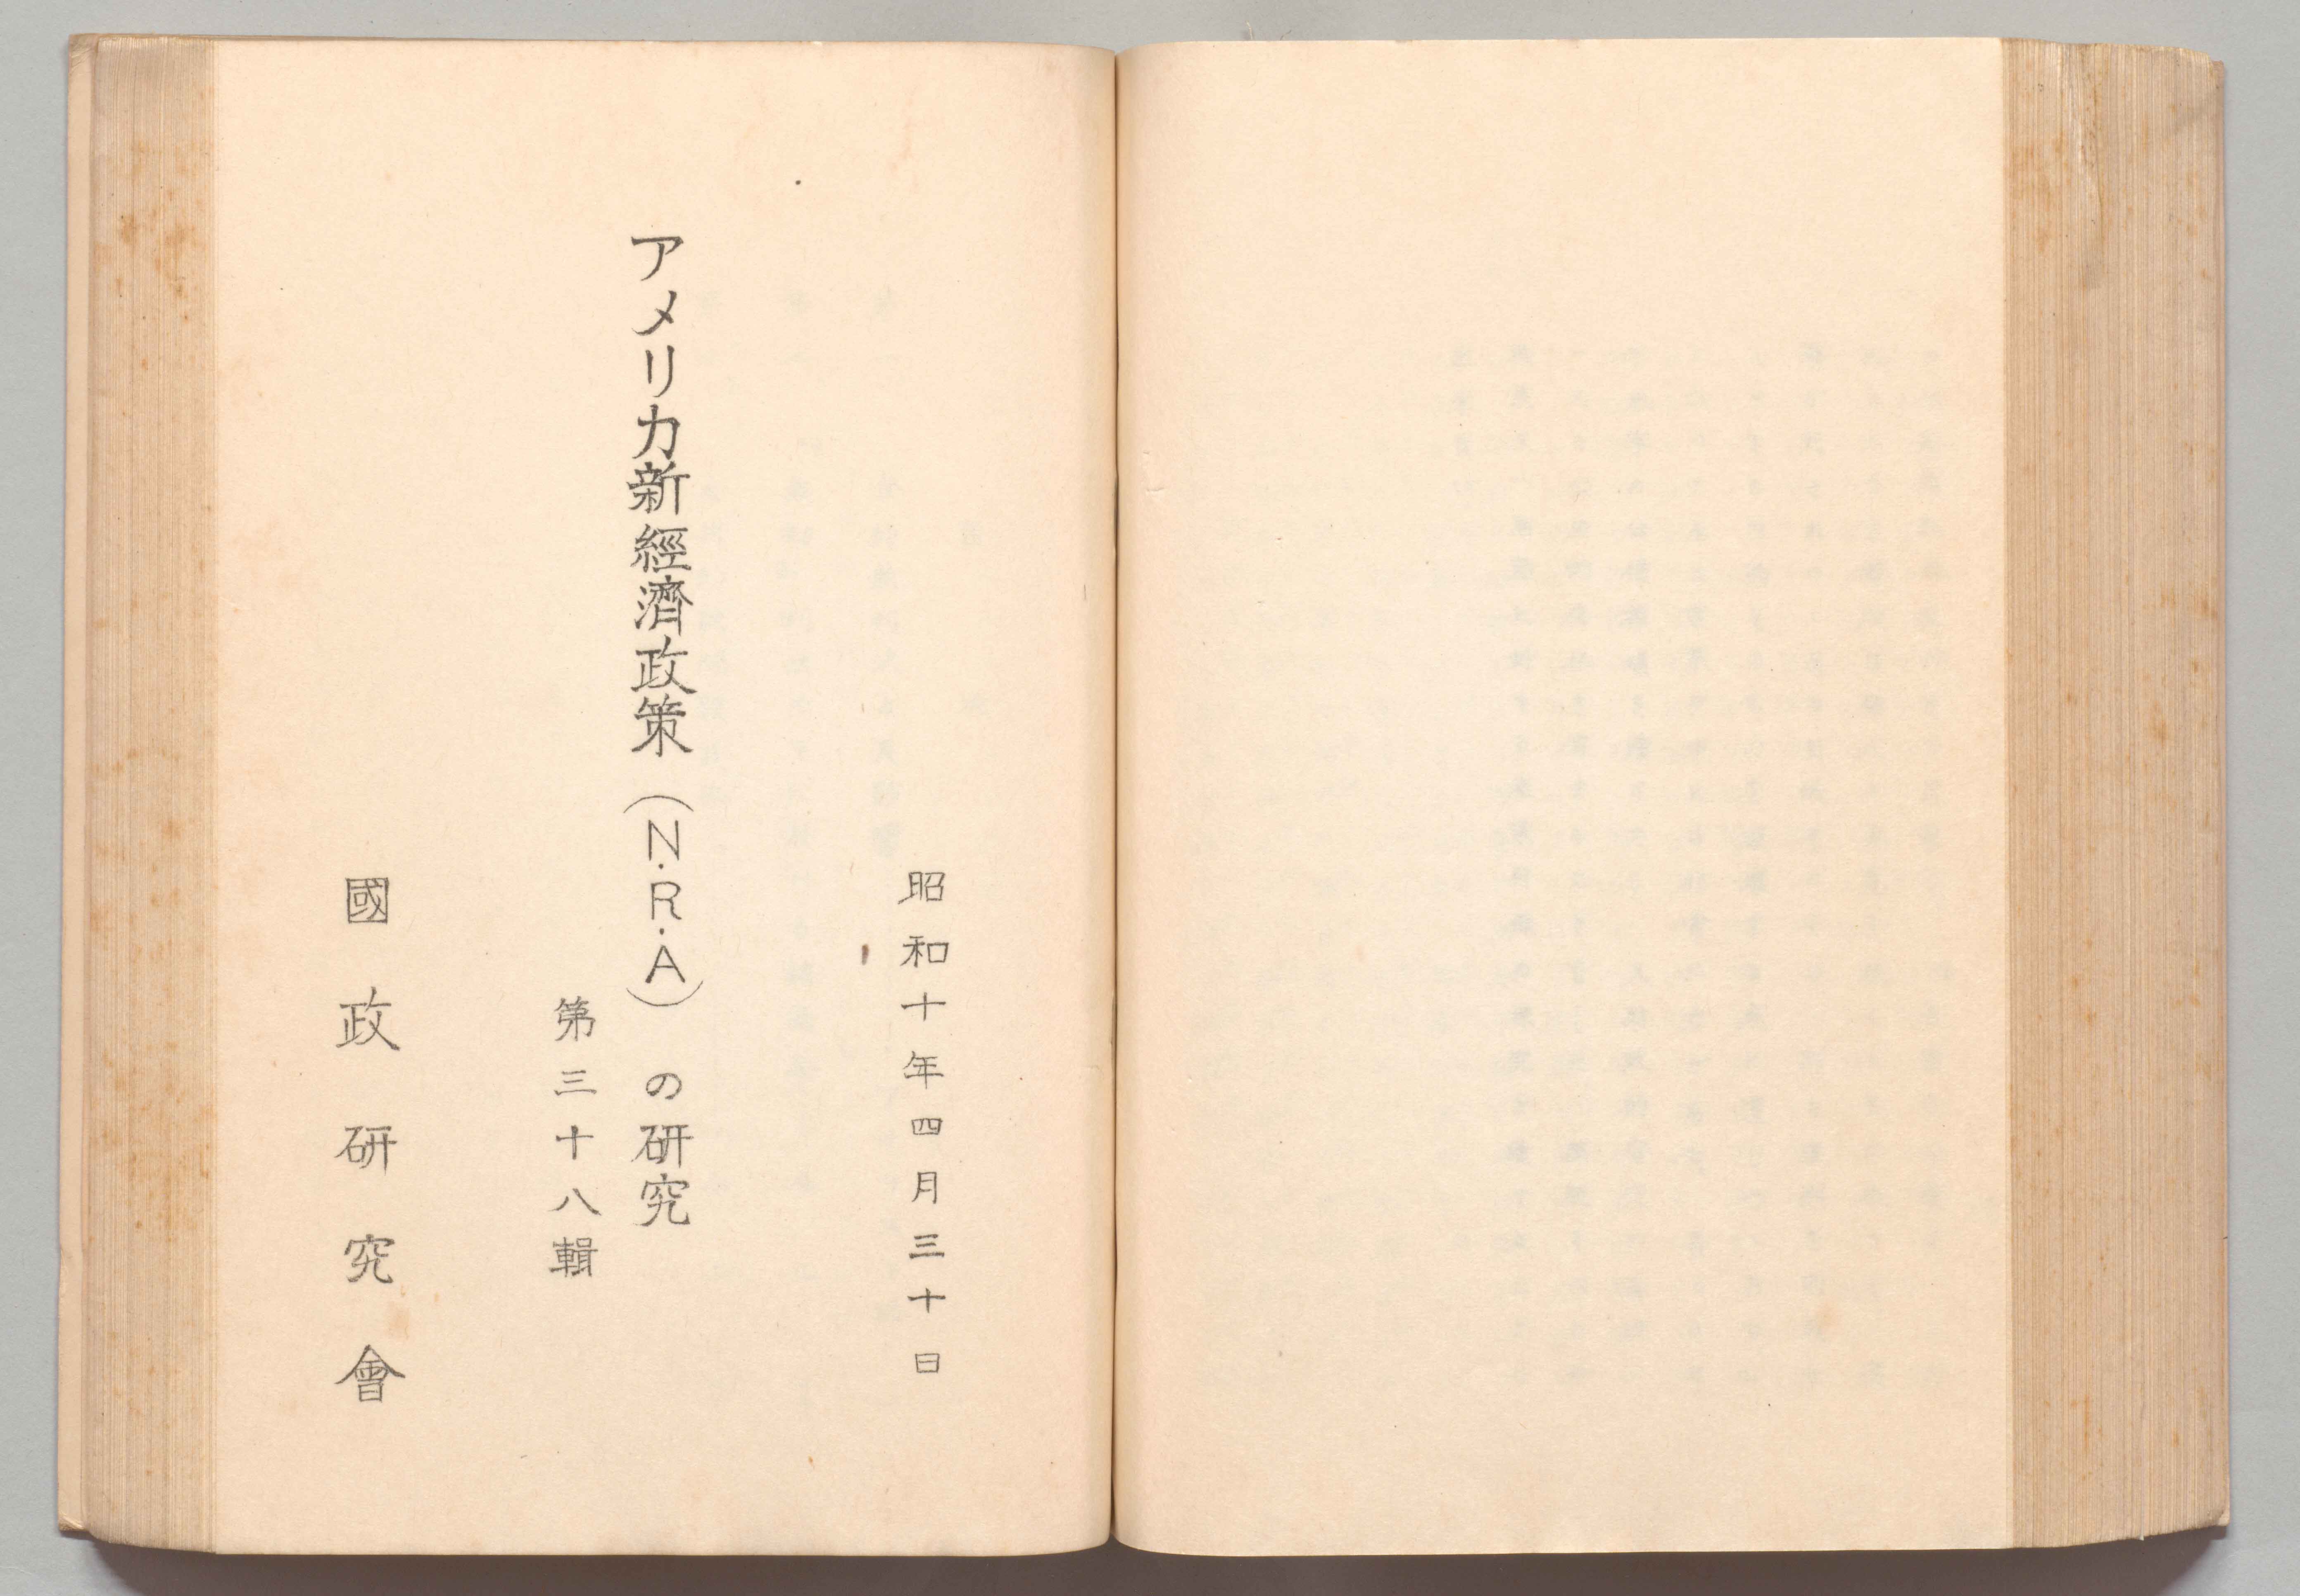 昭和十年四月三十日
アメリカ新經濟政策(N.R.A)の研究
第三十八輯
國政研究會